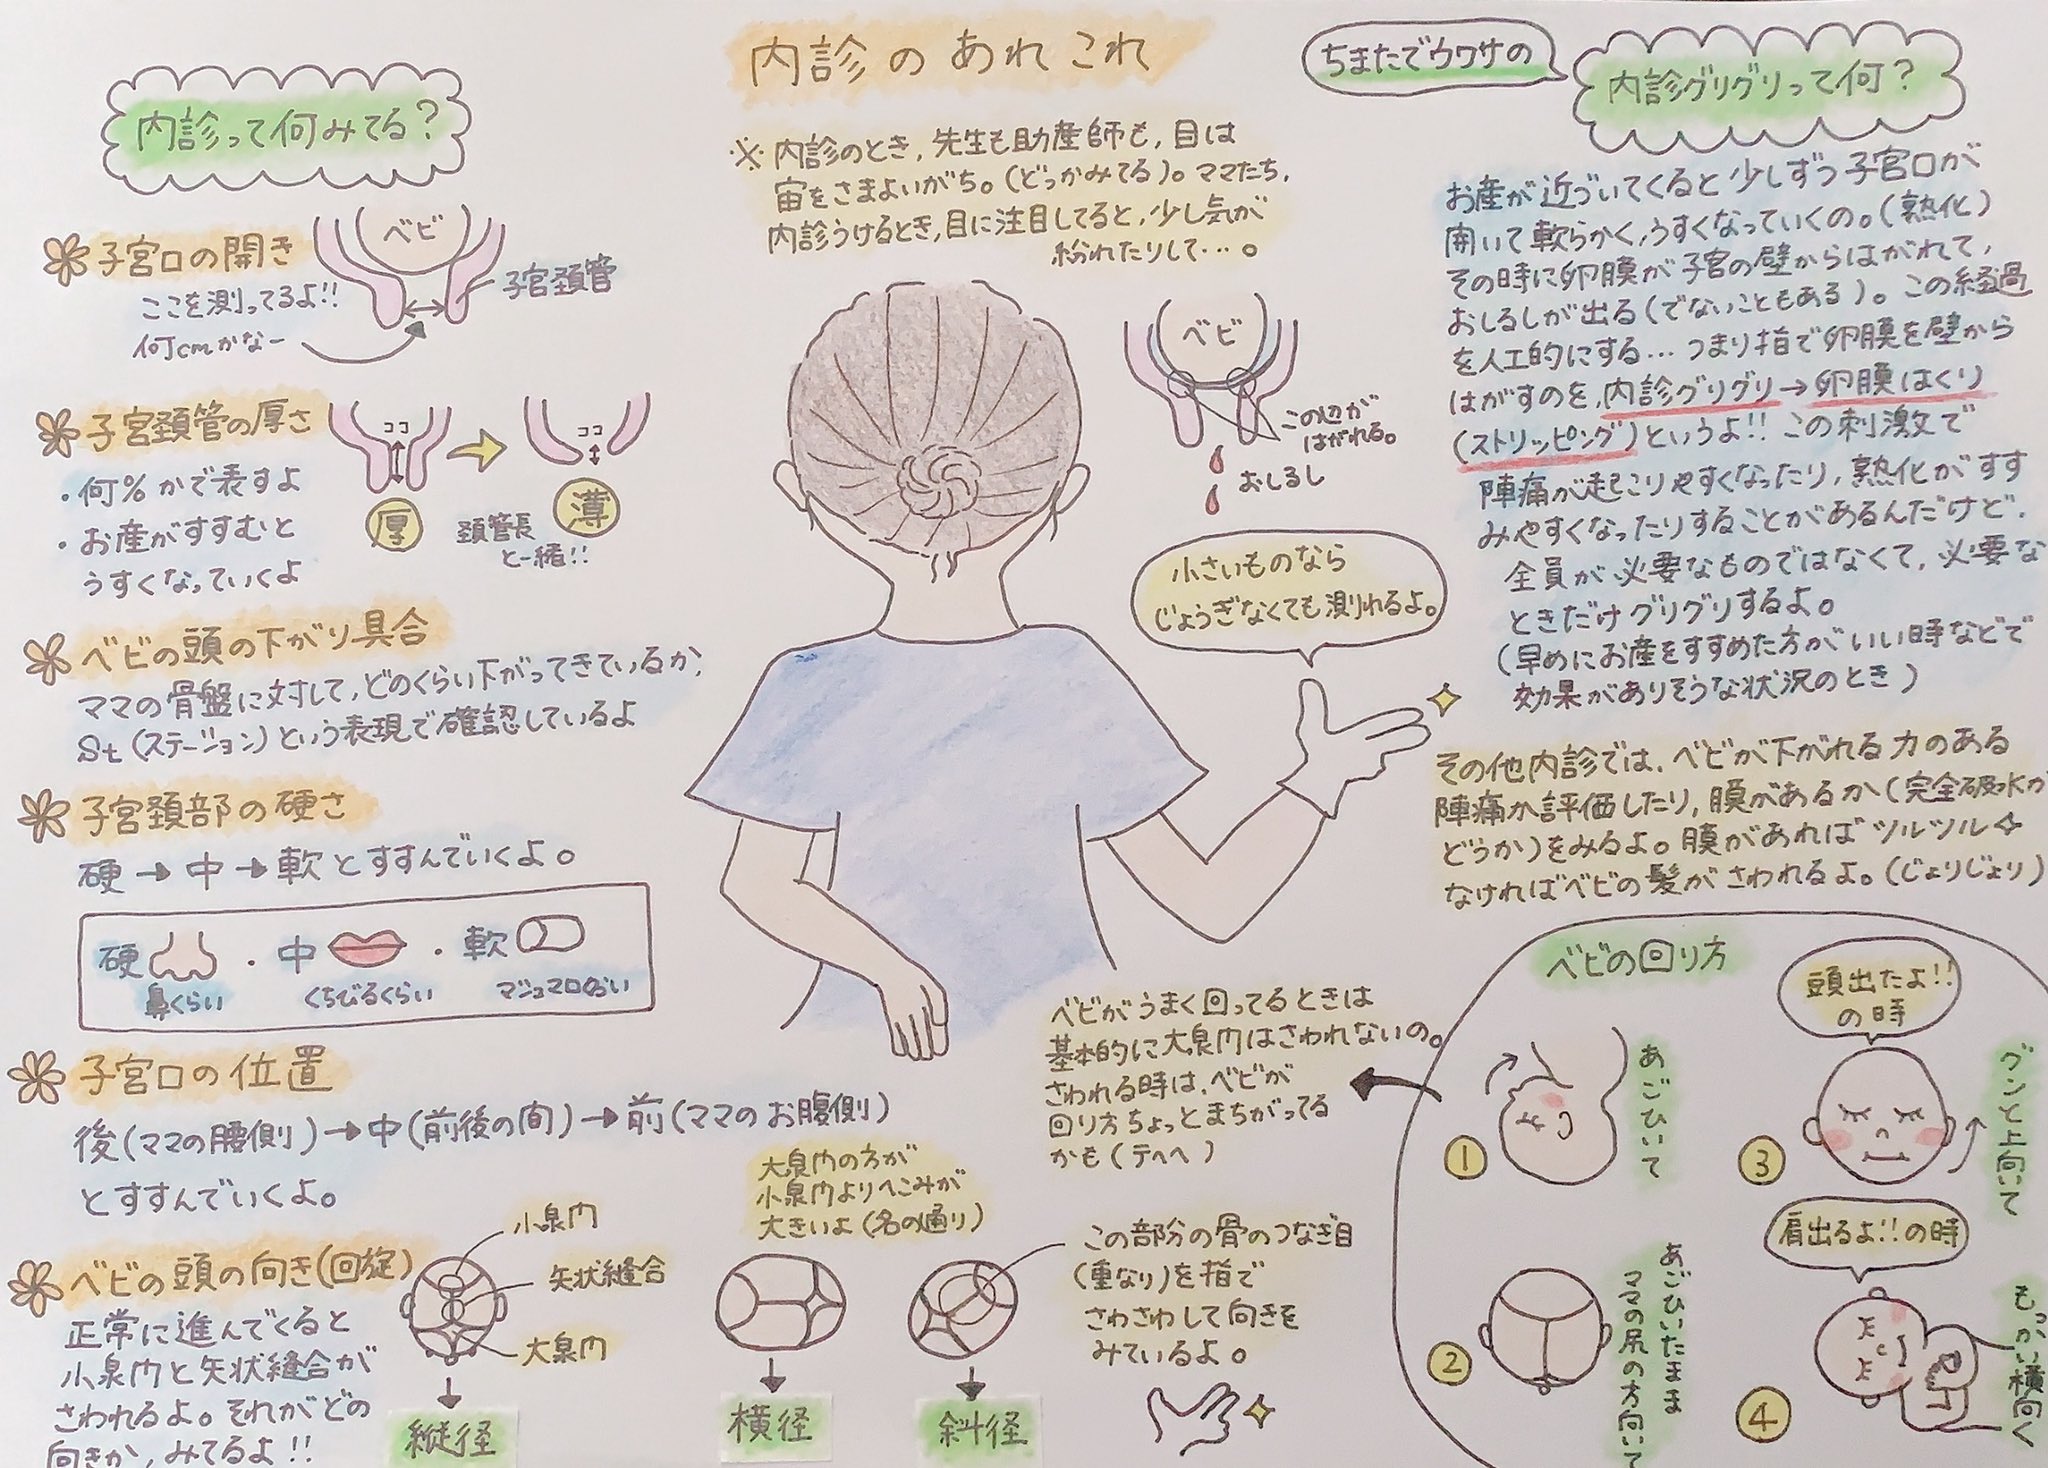 内診のあれこれ
※内診のとき、先生も助産師も、目は
宙をさまよいがち。(どっかみてる)。ママたち、
内診うけるとき、目に注目してると、少し気が
紛れたりして…。
内診って何みてる?
子宮口の開き
ここを測ってるよ!!
何cmかなー
ベビ
子宮頚管
子宮頚管の厚さ
・何%かで表すよ
・お産がすすむと
うすくなっていくよ
ココ
厚
ココ
薄
頚管長
と一緒!!
ベビの頭の下がり具合
ママの骨盤に対して、どのくらい下がってきているか、
St(ステーション)という表現で確認しているよ
子宮頚部の硬さ
硬→中→軟とすすんでいくよ。
硬・中・軟
鼻くらい
くちびるくらい
マシュマロくらい
子宮口の位置
後(ママの腰側)→中(前後の間)→前(ママのお腹側)
とすすんでいくよ。
ベビの頭の向き(回旋)
正常に進んでくると
小泉門と矢状縫合が
さわれるよ。それがどの
向きか、みてるよ!!
小泉門
矢状縫合
大泉門
縦径
大泉門の方が
小泉門よりへこみが
大きいよ(名の通り)
横径
斜径
この部分の骨のつなぎ目
(重なり)を指で
さわさわして向きを
みているよ。
ベビ
この辺が
はがれる。
おしるし
小さいものなら
じょうぎなくても測れるよ。
ちまたでウワサの
内診グリグリって何?
お産が近づいてくると少しずつ子宮口が
開いて軟らかく、うすくなっていくの。(熟化)
その時に卵膜が子宮の壁からはがれて、
おしるしが出る(でないこともある)。この経過
を人工的にする…つまり指で卵膜を壁から
はがすのを、内診グリグリ→卵膜はくり
(ストリッピング)というよ!!この刺激で
陣痛が起こりやすくなったり、熟化がすす
みやすくなったりすることがあるんだけど、
全員が必要なものではなくて、必要な
ときだけグリグリするよ。
(早めにお産をすすめた方がいい時などで
効果がありそうな状況のとき)
その他内診では、ベビが下がれる力のある
陣痛か評価したり、膜があるか(完全破水か
どうか)をみるよ。膜があればツルツル
なければベビの髪がさわれるよ。(じょりじょり)
ベビがうまく回ってるときは
基本的に大泉門はさわれないの。
さわれる時は、ベビが
回り方ちょっとまちがってる
かも(テヘヘ)
ベビの回り方
①
あごひいて
②
あごひいたまま
ママの尻の方向いて
頭出たよ!!
の時
③
グンと上向いて
肩出るよ!!の時
④
もっかい横向く